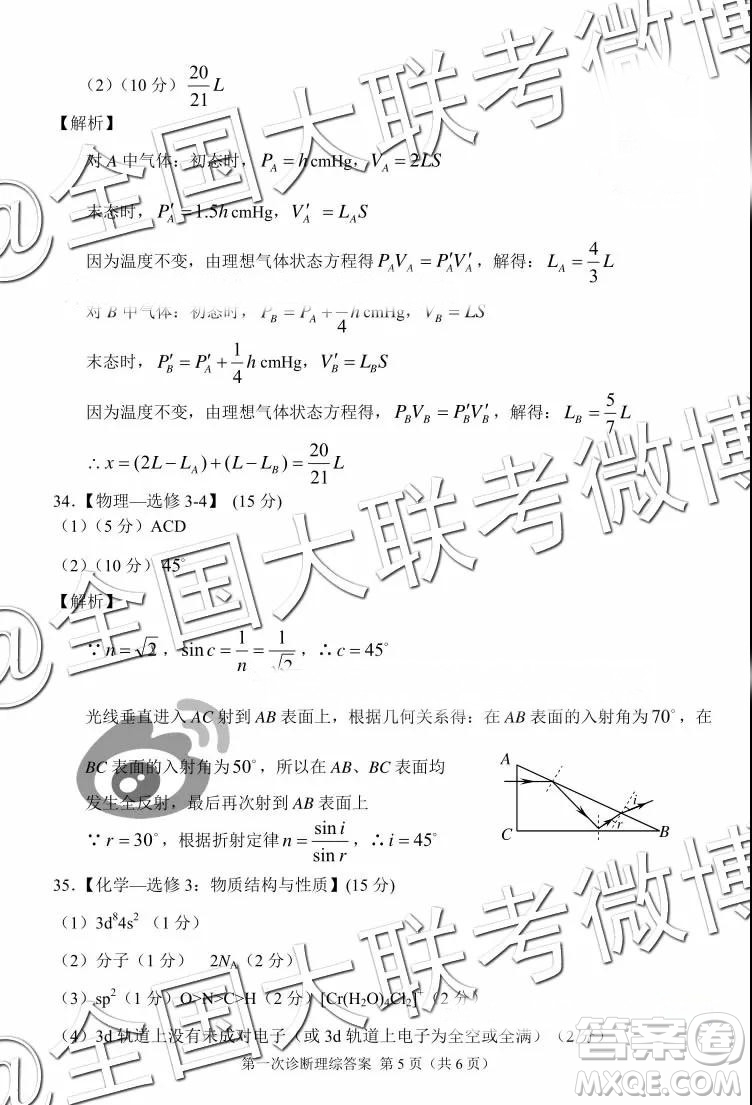 (2)（10 分）20/21 L
【解析】
对 A 中气体：初态时，P_A = h cmHg，V_A = 2LS
末态时，P′_A = 1.5h cmHg，V′_A = L_A S
因为温度不变，由理想气体状态方程得 P_A V_A = P′_A V′_A，解得：L_A = 4/3 L
对 B 中气体：初态时，P_B = P_A + 1/4 h cmHg，V_B = LS
末态时，P′_B = P′_A + 1/4 h cmHg，V′_B = L_B S
因为温度不变，由理想气体状态方程得，P_B V_B = P′_B V′_B，解得：L_B = 5/7 L
∴ x = (2L − L_A) + (L − L_B) = 20/21 L
34.【物理—选修 3-4】 (15 分)
（1）（5 分）ACD
（2）（10 分）45°
【解析】
∵ n = √2，sin c = 1/n = 1/√2，∴ c = 45°
光线垂直进入 AC 射到 AB 表面上，根据几何关系得：在 AB 表面的入射角为 70°，在
BC 表面的入射角为 50°，所以在 AB、BC 表面均
发生全反射，最后再次射到 AB 表面上
∵ r = 30°，根据折射定律 n = sin i / sin r，∴ i = 45°
A
i
r
C
B
35.【化学—选修 3：物质结构与性质】(15 分)
（1）3d⁸4s²（1 分）
（2）分子（1 分） 2N_A（2 分）
（3）sp²（1 分）O>N>C>H（2 分）[Cr(H₂O)₄Cl₂]⁺（2 分）
（4）3d 轨道上没有未成对电子（或 3d 轨道上电子为全空或全满）（2 分）
第一次诊断理综答案 第 5 页（共 6 页）
@全国大联考微博
@全国大联考微博
答案圈
MXQE.COM